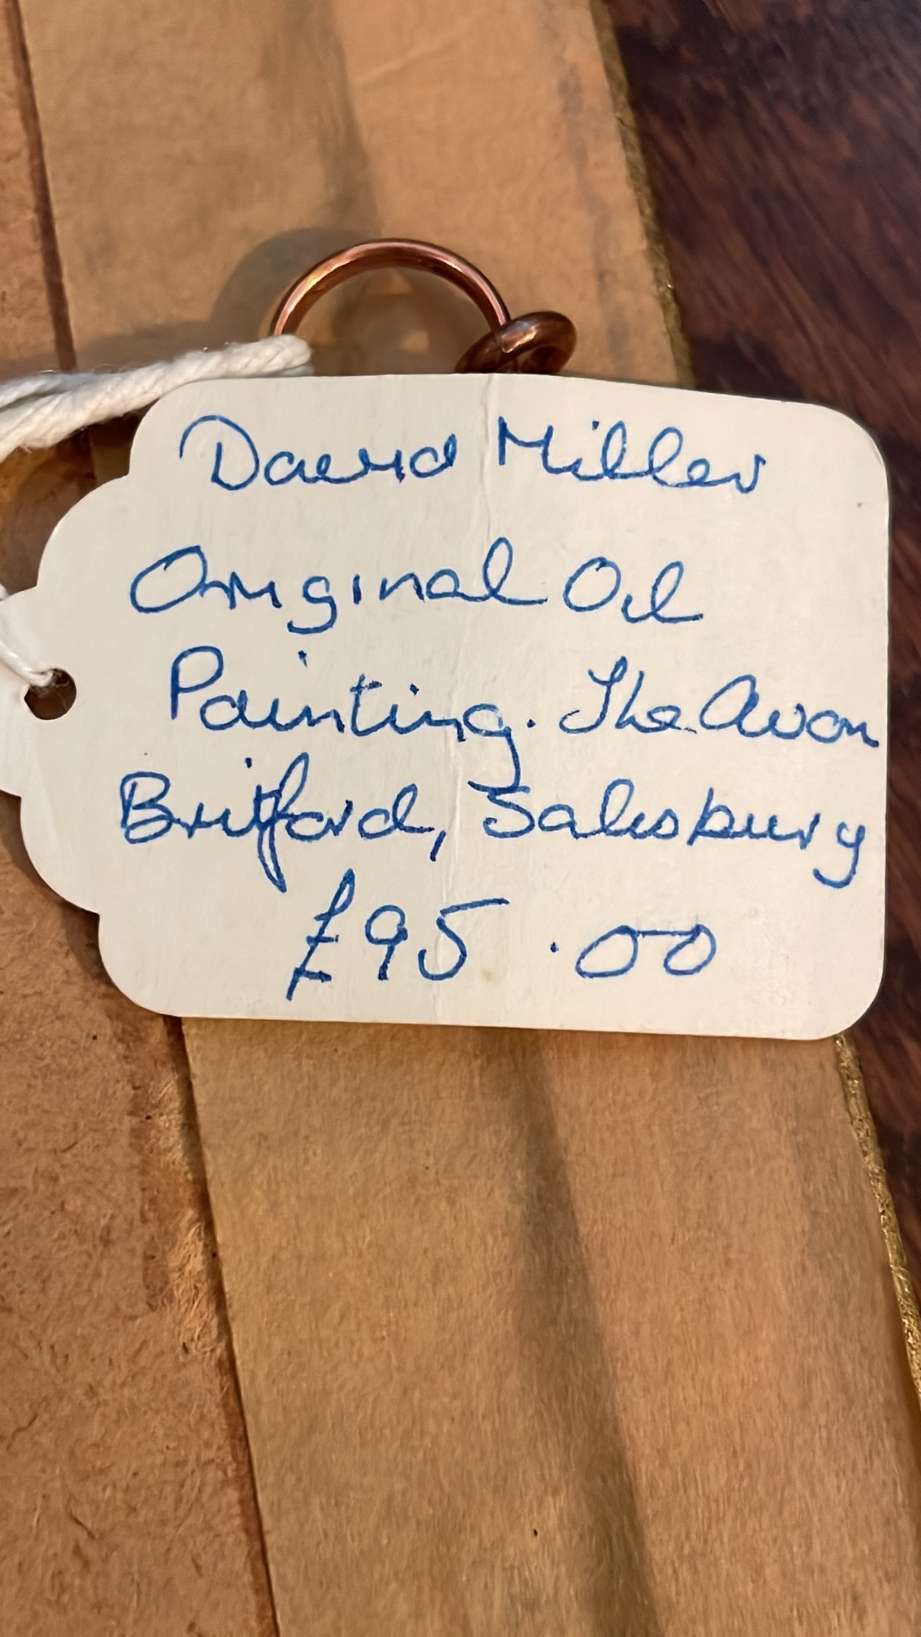 David Miller
Original Oil
Painting. The Avon
Britford, Salisbury
£95.00